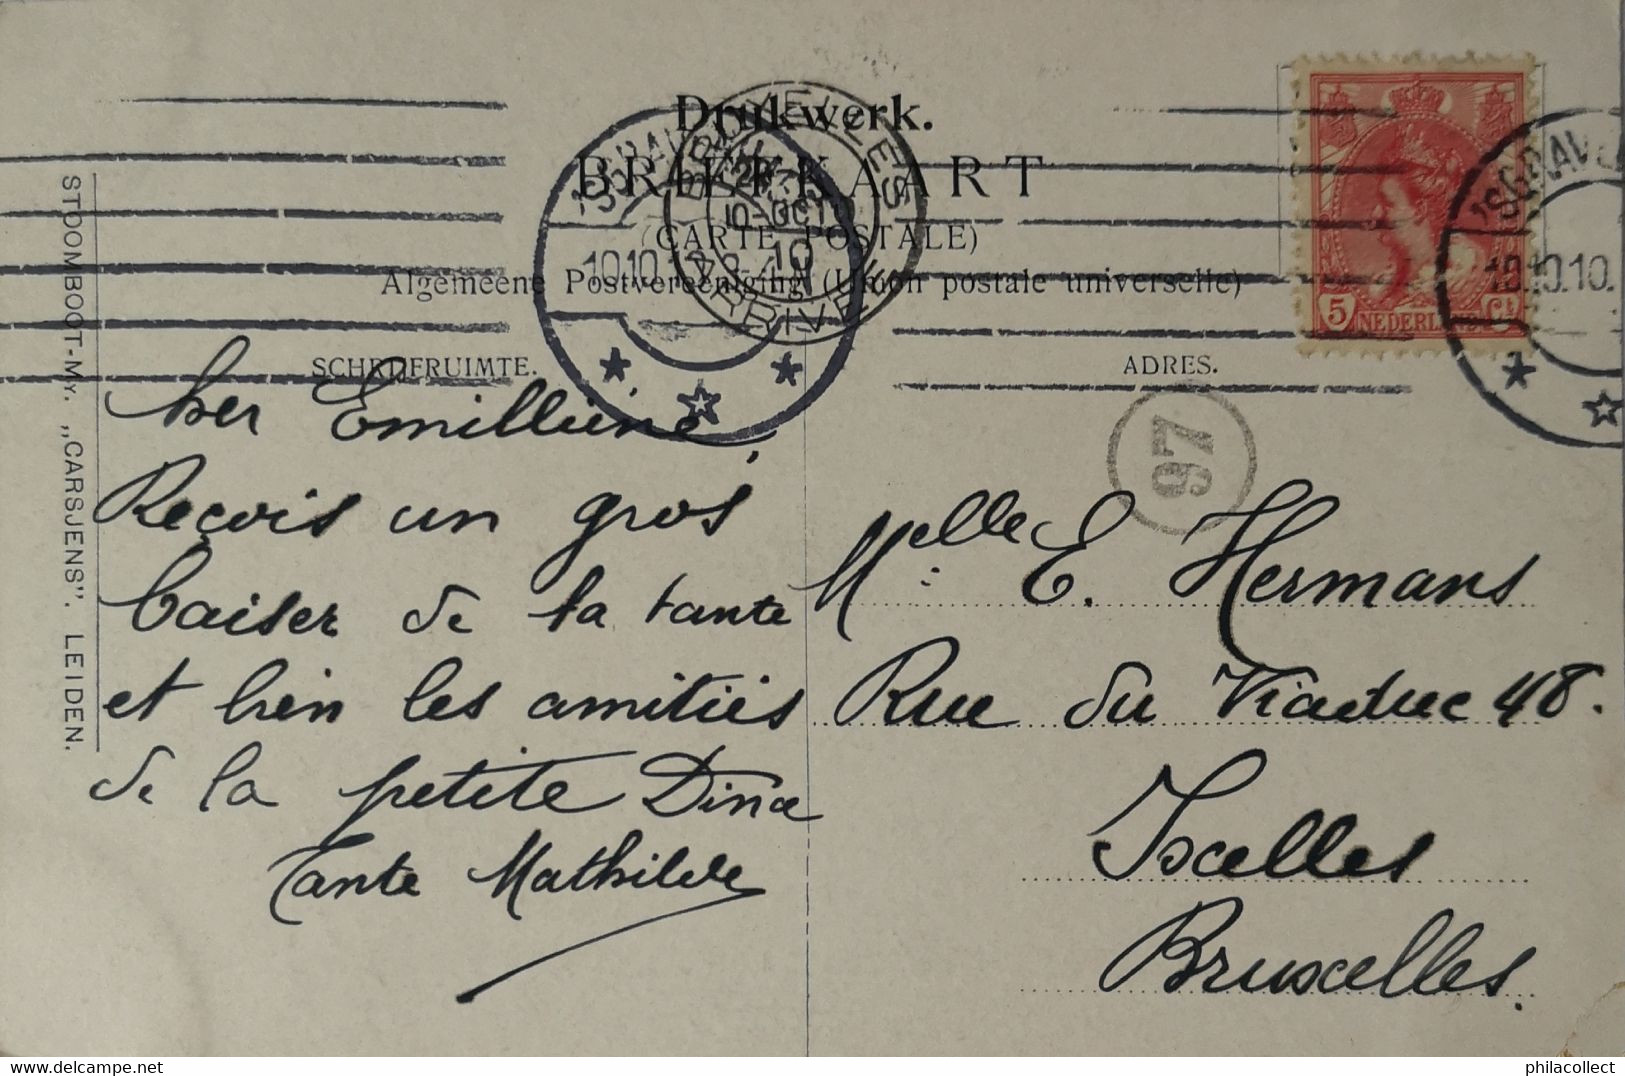 Drukwerk.
BRIEFKAART
(CARTE POSTALE)
Algemeene Postvereeniging (Union postale universelle)
SCHRIJFRUIMTE.
ADRES.
STOOMBOOT-My. „CARSJENS”. LEIDEN.
BRUXELLES
10-OCT
10
ARRIVEE
'SGRAVEN
10.10.10.
5 NEDERLAND Ct
97
cher Emilliene,
Reçois un gros
baiser de ta tante
et bien les amitiés
de la petite Dina
Tante Mathilde
Melle E. Hermans
Rue du Viaduc 48.
Ixelles
Bruxelles.
philacollect